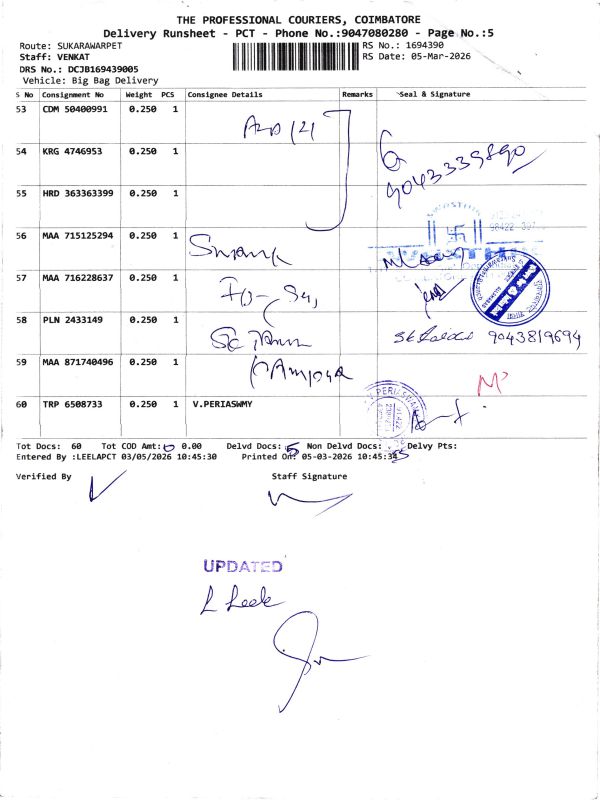 THE PROFESSIONAL COURIERS, COIMBATORE
Delivery Runsheet - PCT - Phone No.:9047080280 - Page No.:5
Route: SUKARAWARPET RS No.: 1694390
Staff: VENKAT RS Date: 05-Mar-2026
DRS No.: DCJB169439005
Vehicle: Big Bag Delivery
S No Consignment No Weight PCS Consignee Details Remarks Seal & Signature
53 CDM 50400991 0.250 1
54 KRG 4746953 0.250 1
9043339890
55 HRD 363363399 0.250 1
56 MAA 715125294 0.250 1
57 MAA 716228637 0.250 1
58 PLN 2433149 0.250 1 9043819694
59 MAA 871740496 0.250 1
60 TRP 6508733 0.250 1 V.PERIASWMY
Tot Docs: 60 Tot COD Amt: 0.00 Delvd Docs: Non Delvd Docs: Delvy Pts:
Entered By :LEELAPCT 03/05/2026 10:45:30 Printed On: 05-03-2026 10:45:34
Verified By Staff Signature
UPDATED